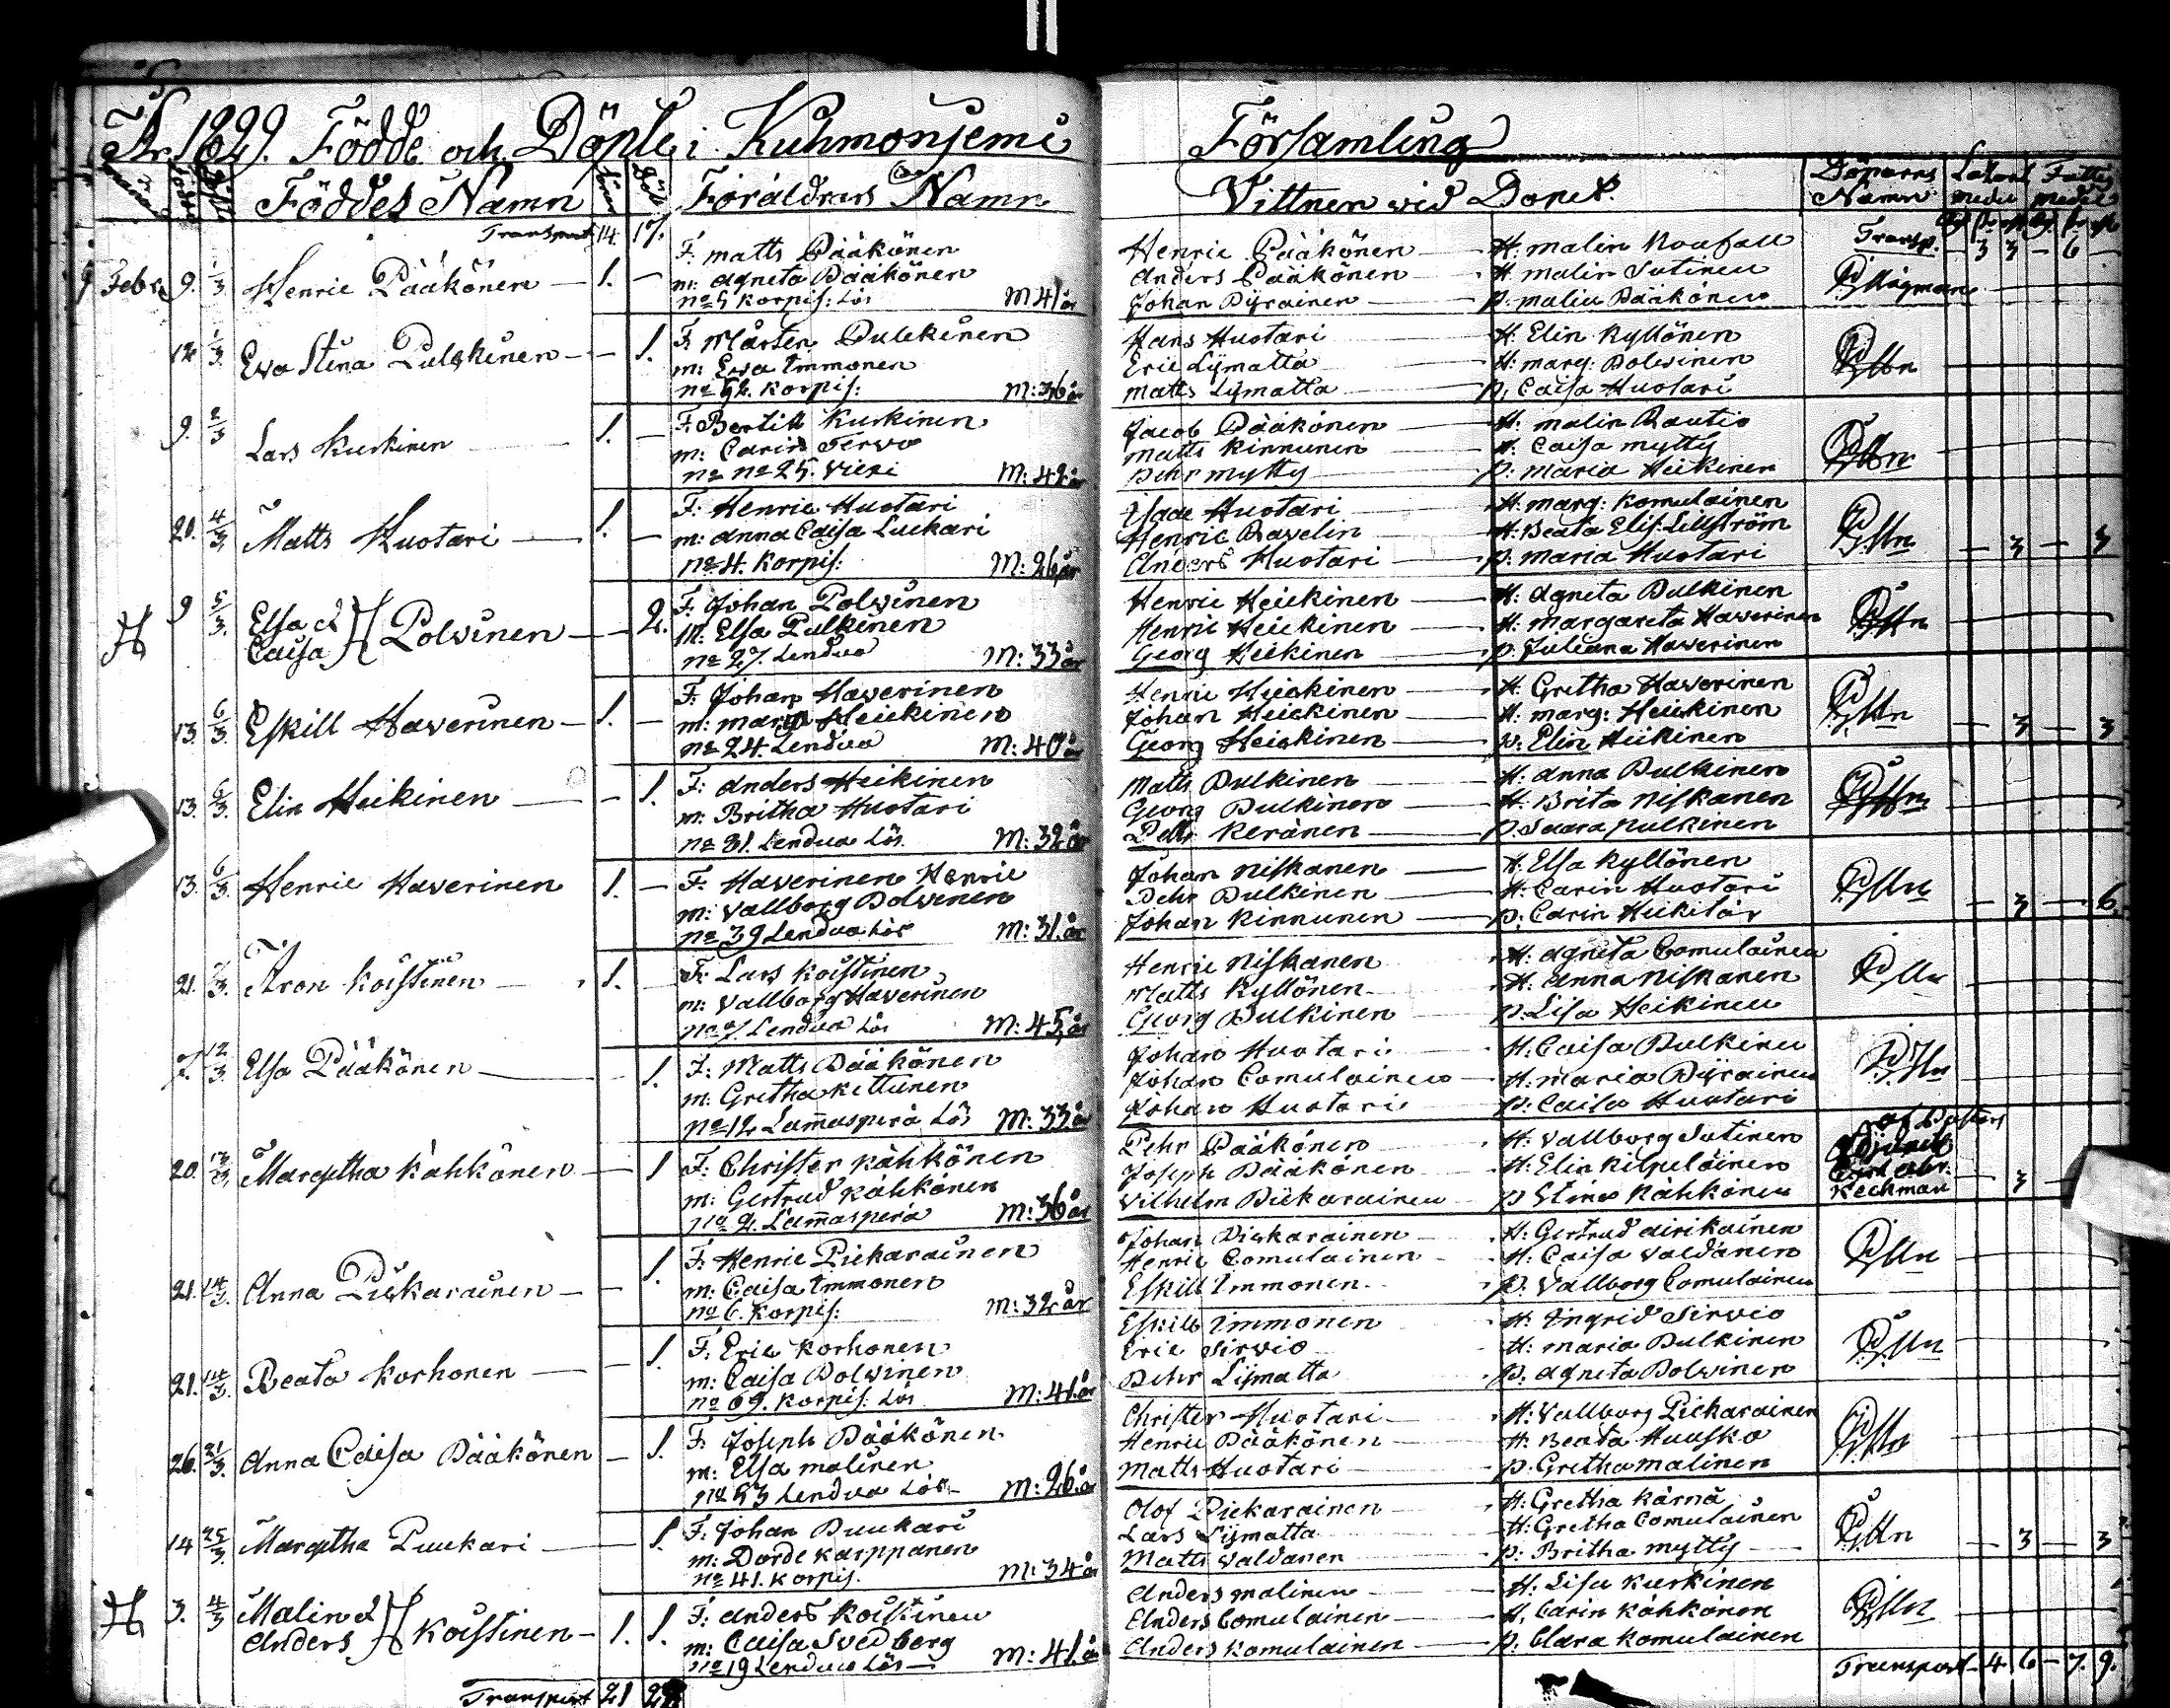 År 1829. Födde och Döpte i Kuhmonjemi Församling
Födde Döpte Föddes Namn Föräldrars Namn Vittnen vid Dopet. Döparens Namn
Transport 14. 17. Transp. 3 3 — 6 —
F. Matts Pääkönen Henric Pääkönen — H: Malin
9 Febr. 9. 1/3 Henric Pääkönen — 1. — m: Agneta Pääkönen Anders Pääkönen — H: Malin Sutinen
No 5 Korpis: Lös M 41 år Johan Pyrainen — p: Malin Pääkönen
F: Mårten Pulckinen Hans Huotari — H: Elin Kyllönen
12 1/3 Ewa Stina Pulckinen — — 1. m: Ewa Immonen Eric Lijmatta — H: Marg: Polvinen
No 52. Korpis: M: 36 år Matts Lijmatta — p: Caisa Huotari
F: Bertill Kurkinen Jacob Pääkönen — H: Malin Rautio
9. 2/3 Lars Kurkinen — 1. — m: Carin Servo Matts Kinnunen — H: Caisa Mytty
No 25. Viexi M: 42 år Pehr Mytty — p: Maria Heikinen
F: Henric Huotari Isaac Huotari — H: Marg: Komulainen
20. 4/3 Matts Huotari — 1. — m: Anna Caisa Luckari Henric Ravelin — H: Beata Elis: Lillström
No 4. Korpis: M: 26 år Anders Huotari — p: Maria Huotari — 3 — 3
F: Johan Polvinen Henric Heickinen — H: Agneta Pulkinen
9 5/3 Elsa & Caisa Polvinen — — 2. M: Elsa Pulkinen Henric Heickinen — H: Margareta Haverinen
No 27. Lendua M: 33 år Georg Heikinen — p: Juliana Haverinen
F: Johan Haverinen Henric Heickinen — H: Gretha Haverinen
13. 6/3 Eskill Haverinen — 1. — m: Marg: Heickinen Johan Heickinen — H: Marg: Heickinen
No 24. Lendua M: 40 år Georg Heickinen — p: Elin Heikinen — 3 — 3
F: Anders Heikinen Matts Pulkinen — H: Anna Pulkinen
13. 6/3 Elin Heikinen — — 1. m: Britha Huotari Georg Pulkinen — H: Brita Niskanen
No 31. Lendua Lös. M: 32 år Pehr Keränen — p: Saara Pulkinen
F: Haverinen Henric Johan Niskanen — H: Elsa Kyllönen
13. 6/3 Henric Haverinen 1. — m: Vallborg Polvinen Pehr Pulkinen — H: Carin Huotari
No 39 Lendua Lös M: 31. år Johan Kinnunen — p: Carin — 3 — 6.
F: Lars Koistinen Henric Niskanen — H: Agneta Comulainen
21. Aron Koistinen — 1. m: Vallborg Haverinen Matts Kyllönen — H: Anna Niskanen
No 7. Lendua Lös M: 45 år Georg Pulkinen — p: Lisa Heikinen
F: Matts Pääkönen Johan Huotari — H: Caisa Pulkinen
7. 12/3 Elsa Pääkönen — 1. m: Gretha Kettunen Johan Comulainen — H: Maria Pyrainen
No 12 Lam̅asperä Lös M: 33 år Johan Huotari — p: Caisa Huotari
F: Christer Kähkönen Pehr Pääkönen — H: Vallborg Sutinen
20. 13/3 Margetha Kähkönen — 1 m: Gertrud Kähkönen Joseph Pääkönen — H: Elin Kilpeläinen
No 2. Lam̅asperä M: 36 år Vilhelm Pickarainen — p: Stina Kähkönen Keckman — 3
F: Henric Pickarainen Johan Pickarainen — H: Gertrud Airikainen
21. 14/3. Anna Pickarainen — — 1. m: Caisa Immonen Henric Comulainen — H: Caisa Valdanen
No 6. Korpis: M: 32 år Eskill Immonen — p: Vallborg Comulainen
F: Eric Korhonen Eskill Immonen — H: Ingrid Sirvio
21. 14/3. Beata Korhonen — — 1. m: Caisa Polvinen Eric Sirvio — H: Maria Pulkinen
No 69. Korpis: Lös M: 41. år Pehr Lijmatta — p: Agneta Polvinen
F: Joseph Pääkönen Christer Huotari — H: Vallborg Pickarainen
26. 21/3. Anna Caisa Pääkönen — 1. m: Elsa Malinen Henric Pääkönen — H: Beata Huusko
No 53 Lendua Lös — M: 26. år Matts Huotari — p: Gretha Malinen
F: Johan Puukari Olof Pickarainen — H: Gretha Kärnä
14 25/3. Margetha Puukari — — 1. m: Dorde Karppanen Lars Lijmatta — H: Gretha Comulainen
No 41. Korpis. M: 34 år Matts Valdanen — p: Britha Mytty — 3 — 3
F: Anders Koistinen Anders Malinen — H: Lisa Kurkinen
3. 4/3 Malin & Anders Koistinen — 1. 1. m: Caisa Svedberg Anders Comulainen — H: Carin Kähkönen
No 19 Lendua Lös — M: 41. år Anders Komulainen — p: Clara Komulainen
Transport 21 Transport — 4 6 — 7. 9.